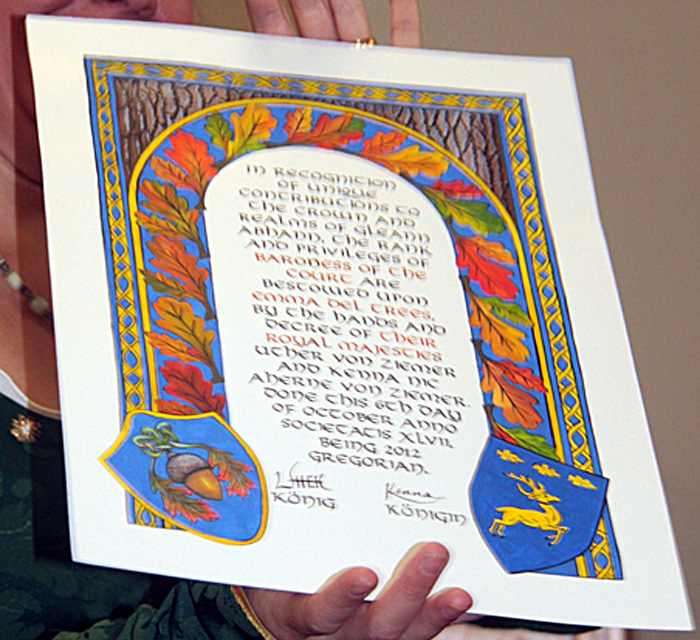 IN RECOGNITION
OF UNIQUE
CONTRIBUTIONS TO
THE CROWN AND
REALMS OF GLEANN
ABHANN, THE RANK
AND PRIVILEGES OF
BARONESS OF THE
COURT ARE
BESTOWED UPON
EMMA DEL TREES,
BY THE HANDS AND
DECREE OF THEIR
ROYAL MAJESTIES
UTHER VON ZIEMER
AND KENNA NIC
AHERNE VON ZIEMER.
DONE THIS 6TH DAY
OF OCTOBER ANNO
SOCIETATIS XLVII,
BEING 2012
GREGORIAN.
Kenna
KÖNIG KÖNIGIN